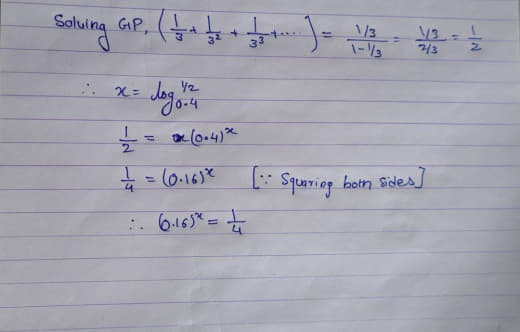 Solving GP, (1/3 + 1/3² + 1/3³ + ....) = (1/3)/(1-1/3) = (1/3)/(2/3) = 1/2
∴ x = log₀.₄ 1/2
1/2 = (0.4)ˣ
1/4 = (0.16)ˣ [∵ Squaring both sides]
∴ (0.16)ˣ = 1/4